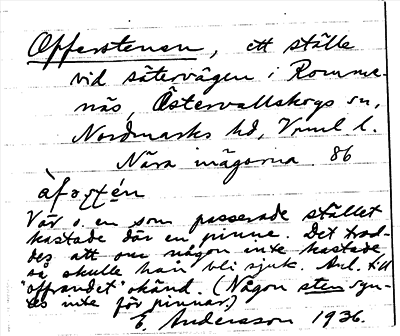 Offerstenen, ett ställe
vid sätervägen i Romme-
näs, Östervallskogs sn,
Nordmarks hd, Vrml l.
Nära vägarna 86
Var o. en som passerade stället
kastade där en pinne. Det trod-
des att om någon inte kastade
så skulle han bli sjuk. Anl. till
"offrandet" okänd. (Någon sten syn-
es inte för pinnar.)
E. Andersson 1936.